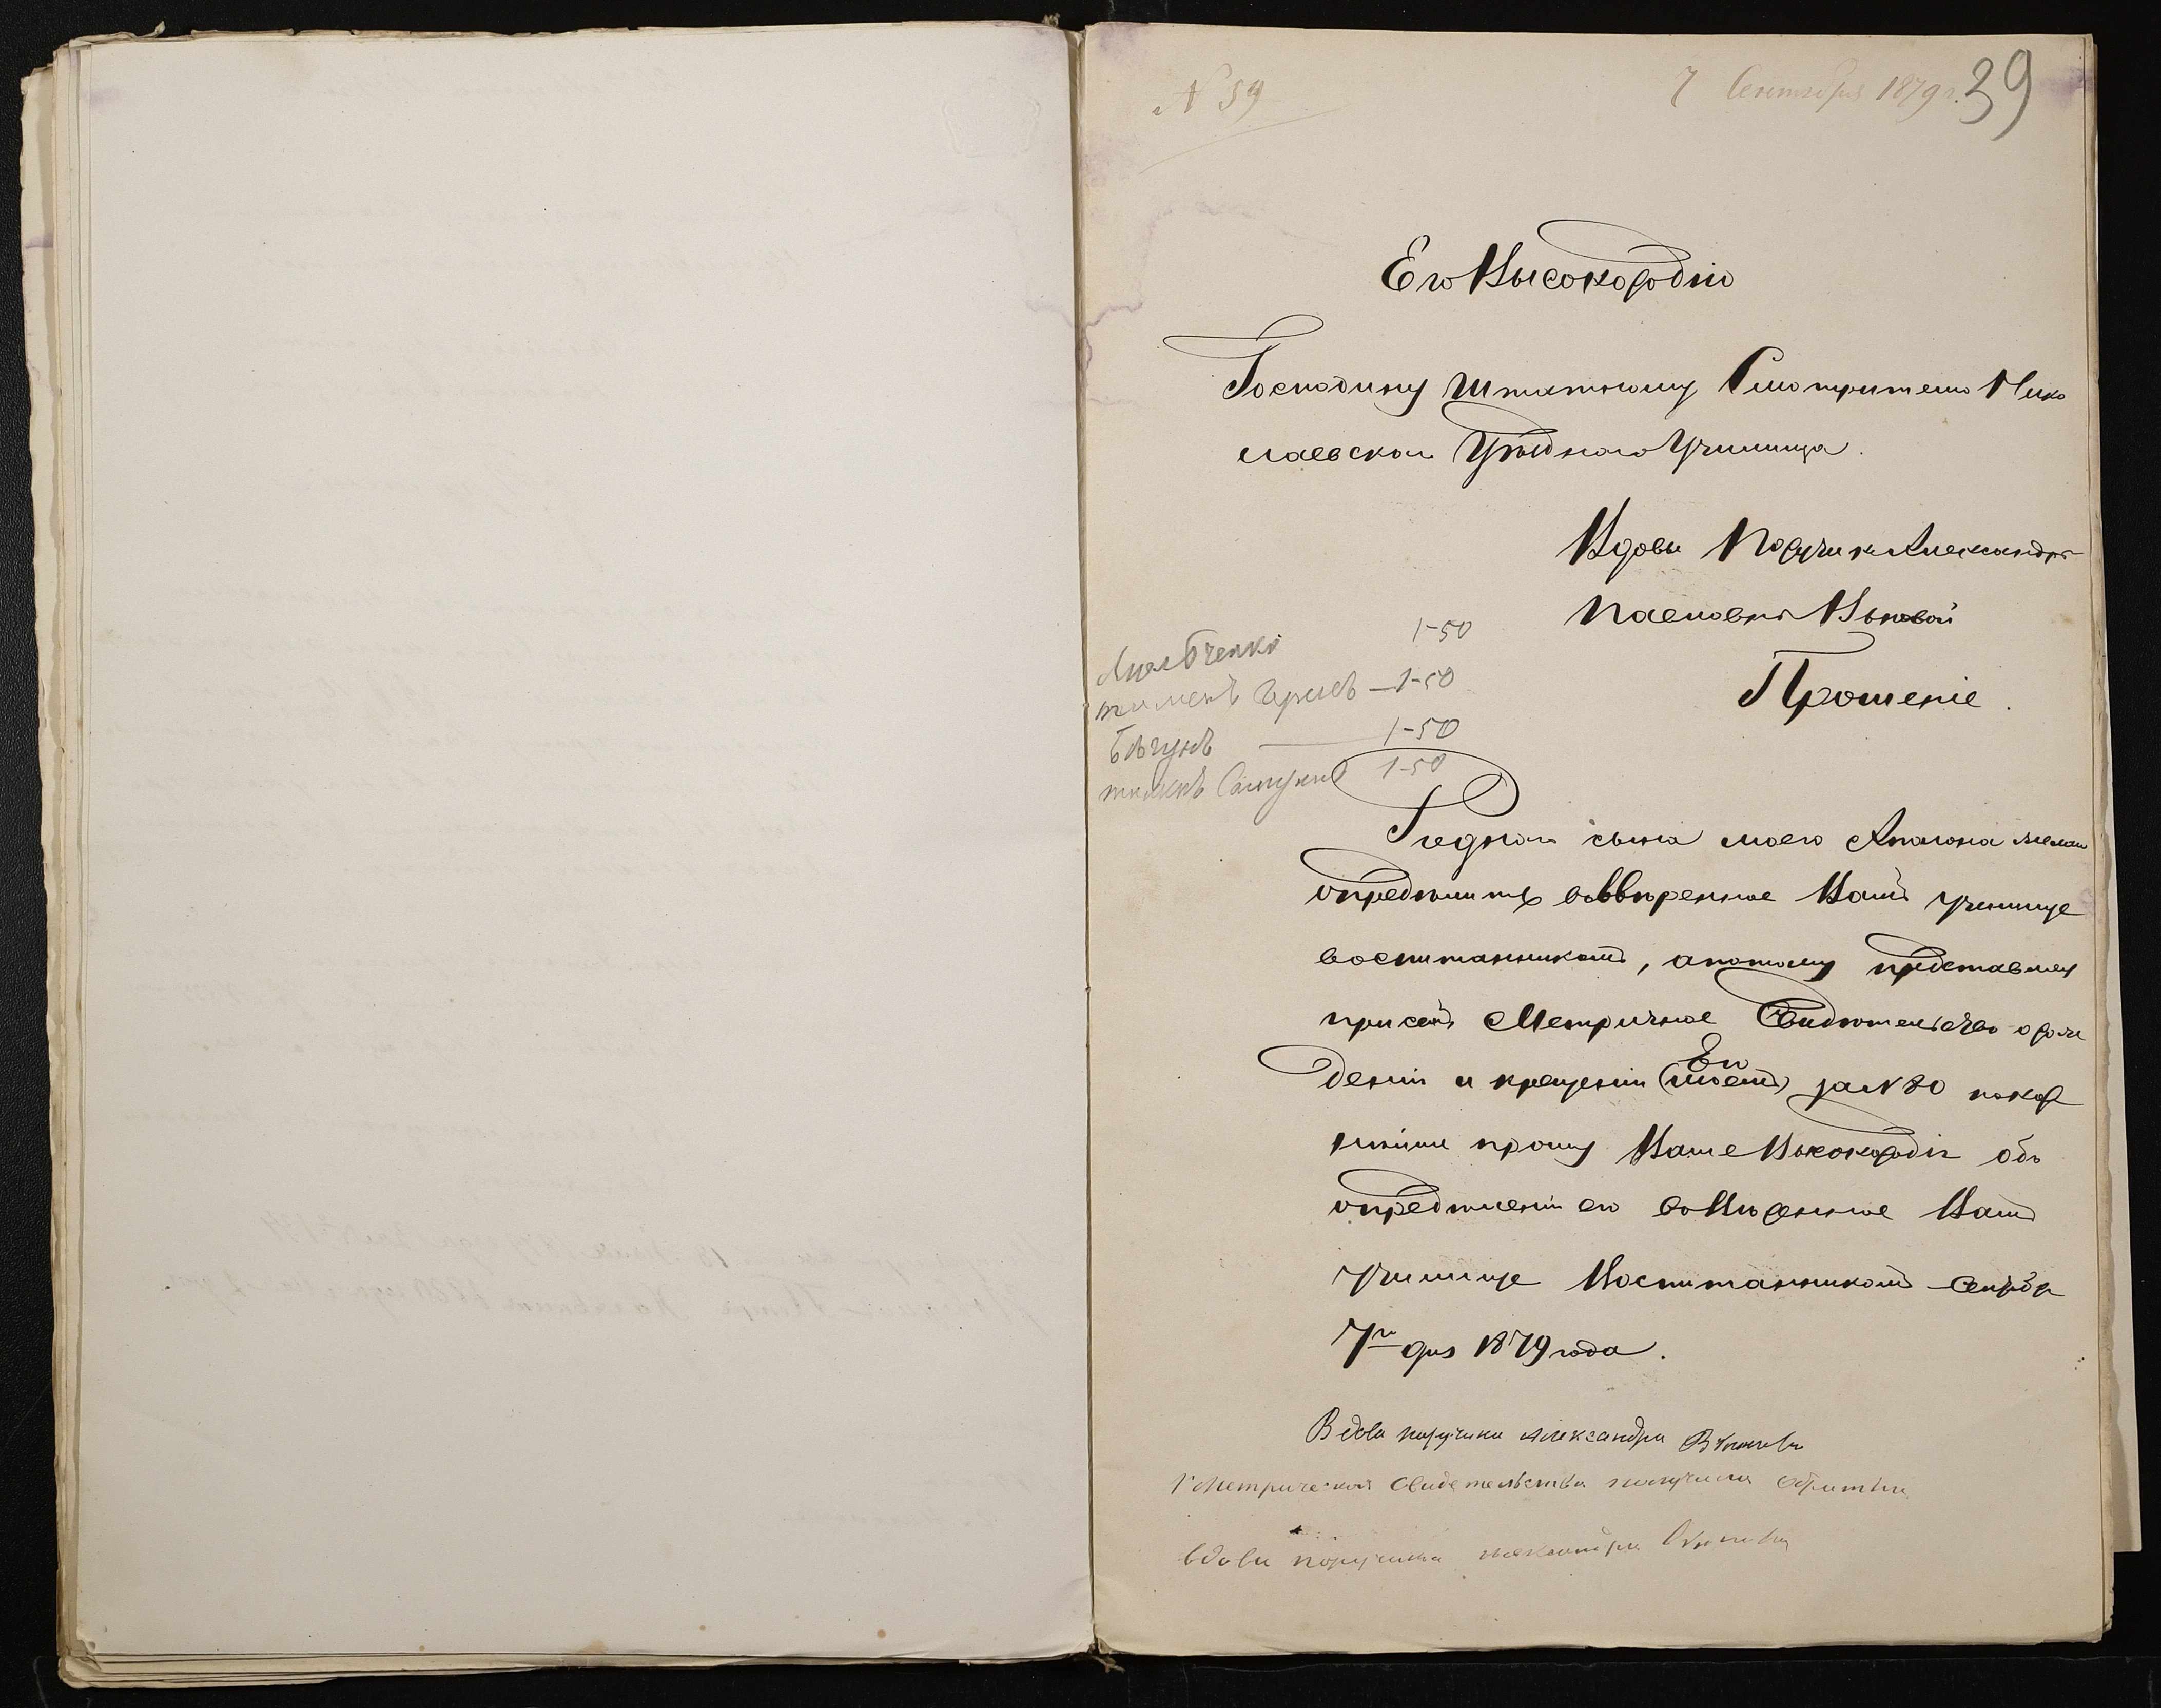 № 59
7 Сентября 1879 г. 39
Его Высокородію
Господину Штатному Смотрителю Нико
лаевскаго Уѣзднаго Училища.
Вдовы Поручика Александры
Прошеніе.
1-50
1-50
Бѣгунъ 1-50
1-50
Роднаго сына моего Аполона желаю
опредѣлить во ввѣренное Вамъ училище
воспитанникомъ, а потому представляя
при семъ Метричное Свидѣтельство о рож
Его
деніи и крещеніи (моемъ) за № 80 покор
нѣйше прошу Ваше Высокородіе объ
опредѣленіи его во Ввѣренное Вамъ
училище Воспитанникомъ Сентября
7го дня 1879 года.
Вдова поручика Александра
Метрическое свидѣтельство получила обратно
вдова поручика Александра